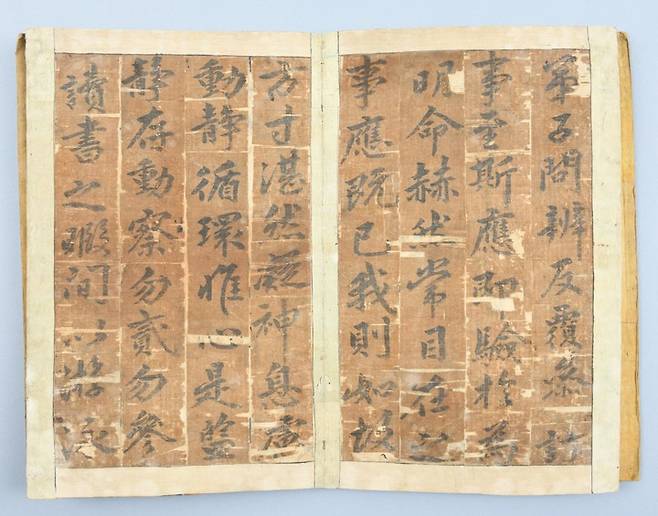 弟子問辨反覆參訂
事至斯應即驗於爲
明命赫然常目在之
事應既已我則如故
方寸湛然凝神息慮
動靜循環惟心是監
靜存動察勿貳勿參
讀書之暇間以游泳